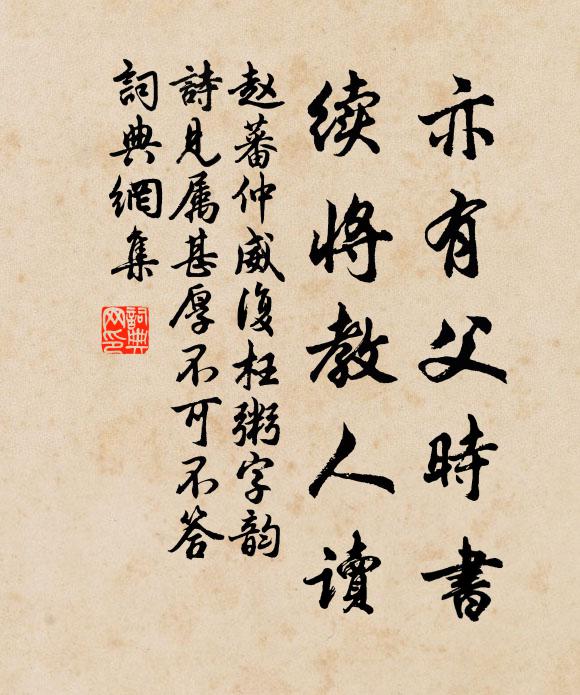 亦有父時書
续將教人讀
赵蕃仲威復枉粥字韵
詩見属甚厚不可不答
詞典網集
詞典
网印